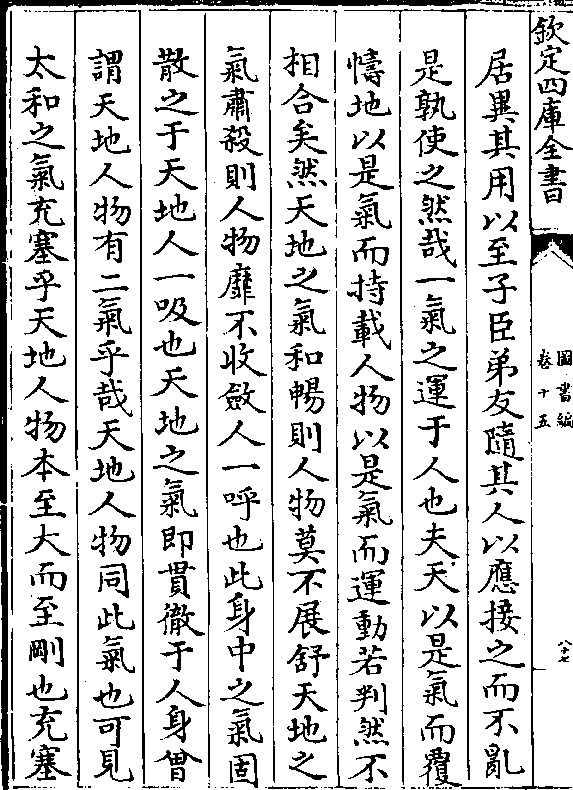 欽定四庫全書
圖書編
卷十五
八十七
居異其用以至子臣弟友隨其人以應接之而不亂
是孰使之然哉一氣之運于人也夫天以是氣而覆
幬地以是氣而持載人物以是氣而運動若判然不
相合矣然天地之氣和暢則人物莫不展舒天地之
氣肅殺則人物靡不收斂人一呼也此身中之氣固
散之于天地人一吸也天地之氣即貫徹于人身曾
謂天地人物有二氣乎哉天地人物同此氣也可見
太和之氣充塞乎天地人物本至大而至剛也充塞